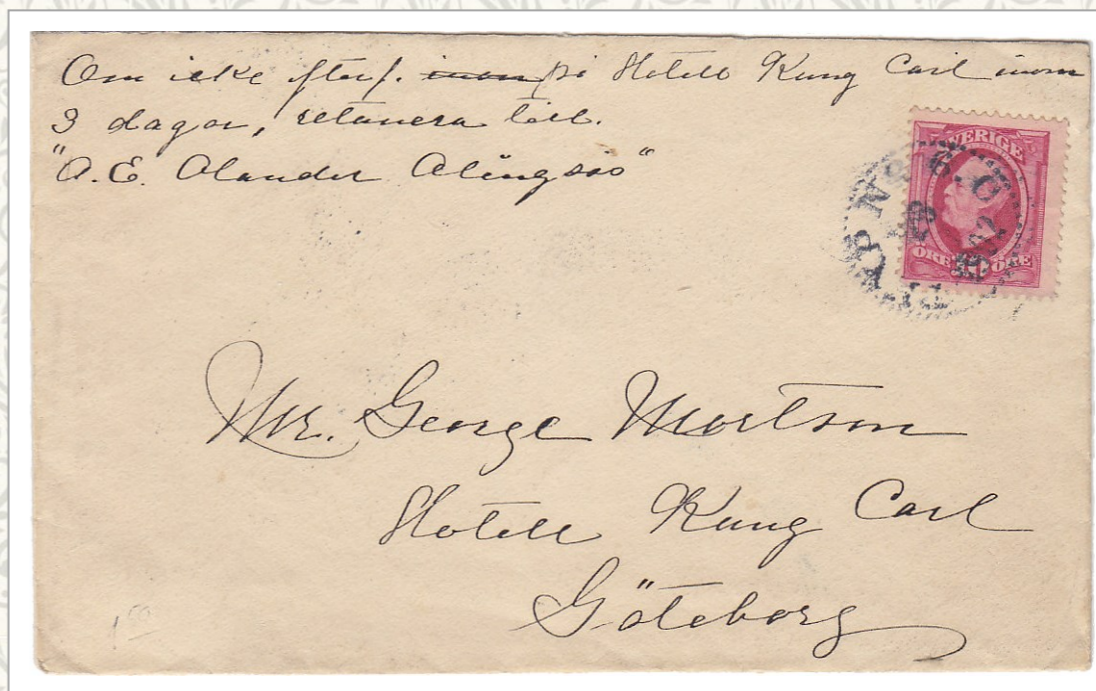 Om icke efterf. inom på Hotell Kung Carl inom
3 dagar, retunera till.
"A.E. Olander Alingsås"
SVERIGE
ÖRE 10 ÖRE
PKXP No 6. Ö
1902
Mr. George Mortson
Hotell Kung Carl
Göteborg
1 50